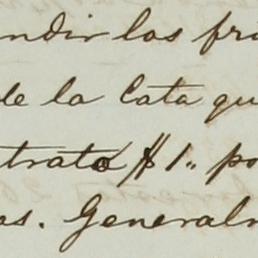 ndir los fri
de la Cata qu
trato $1" po
as. Generalm